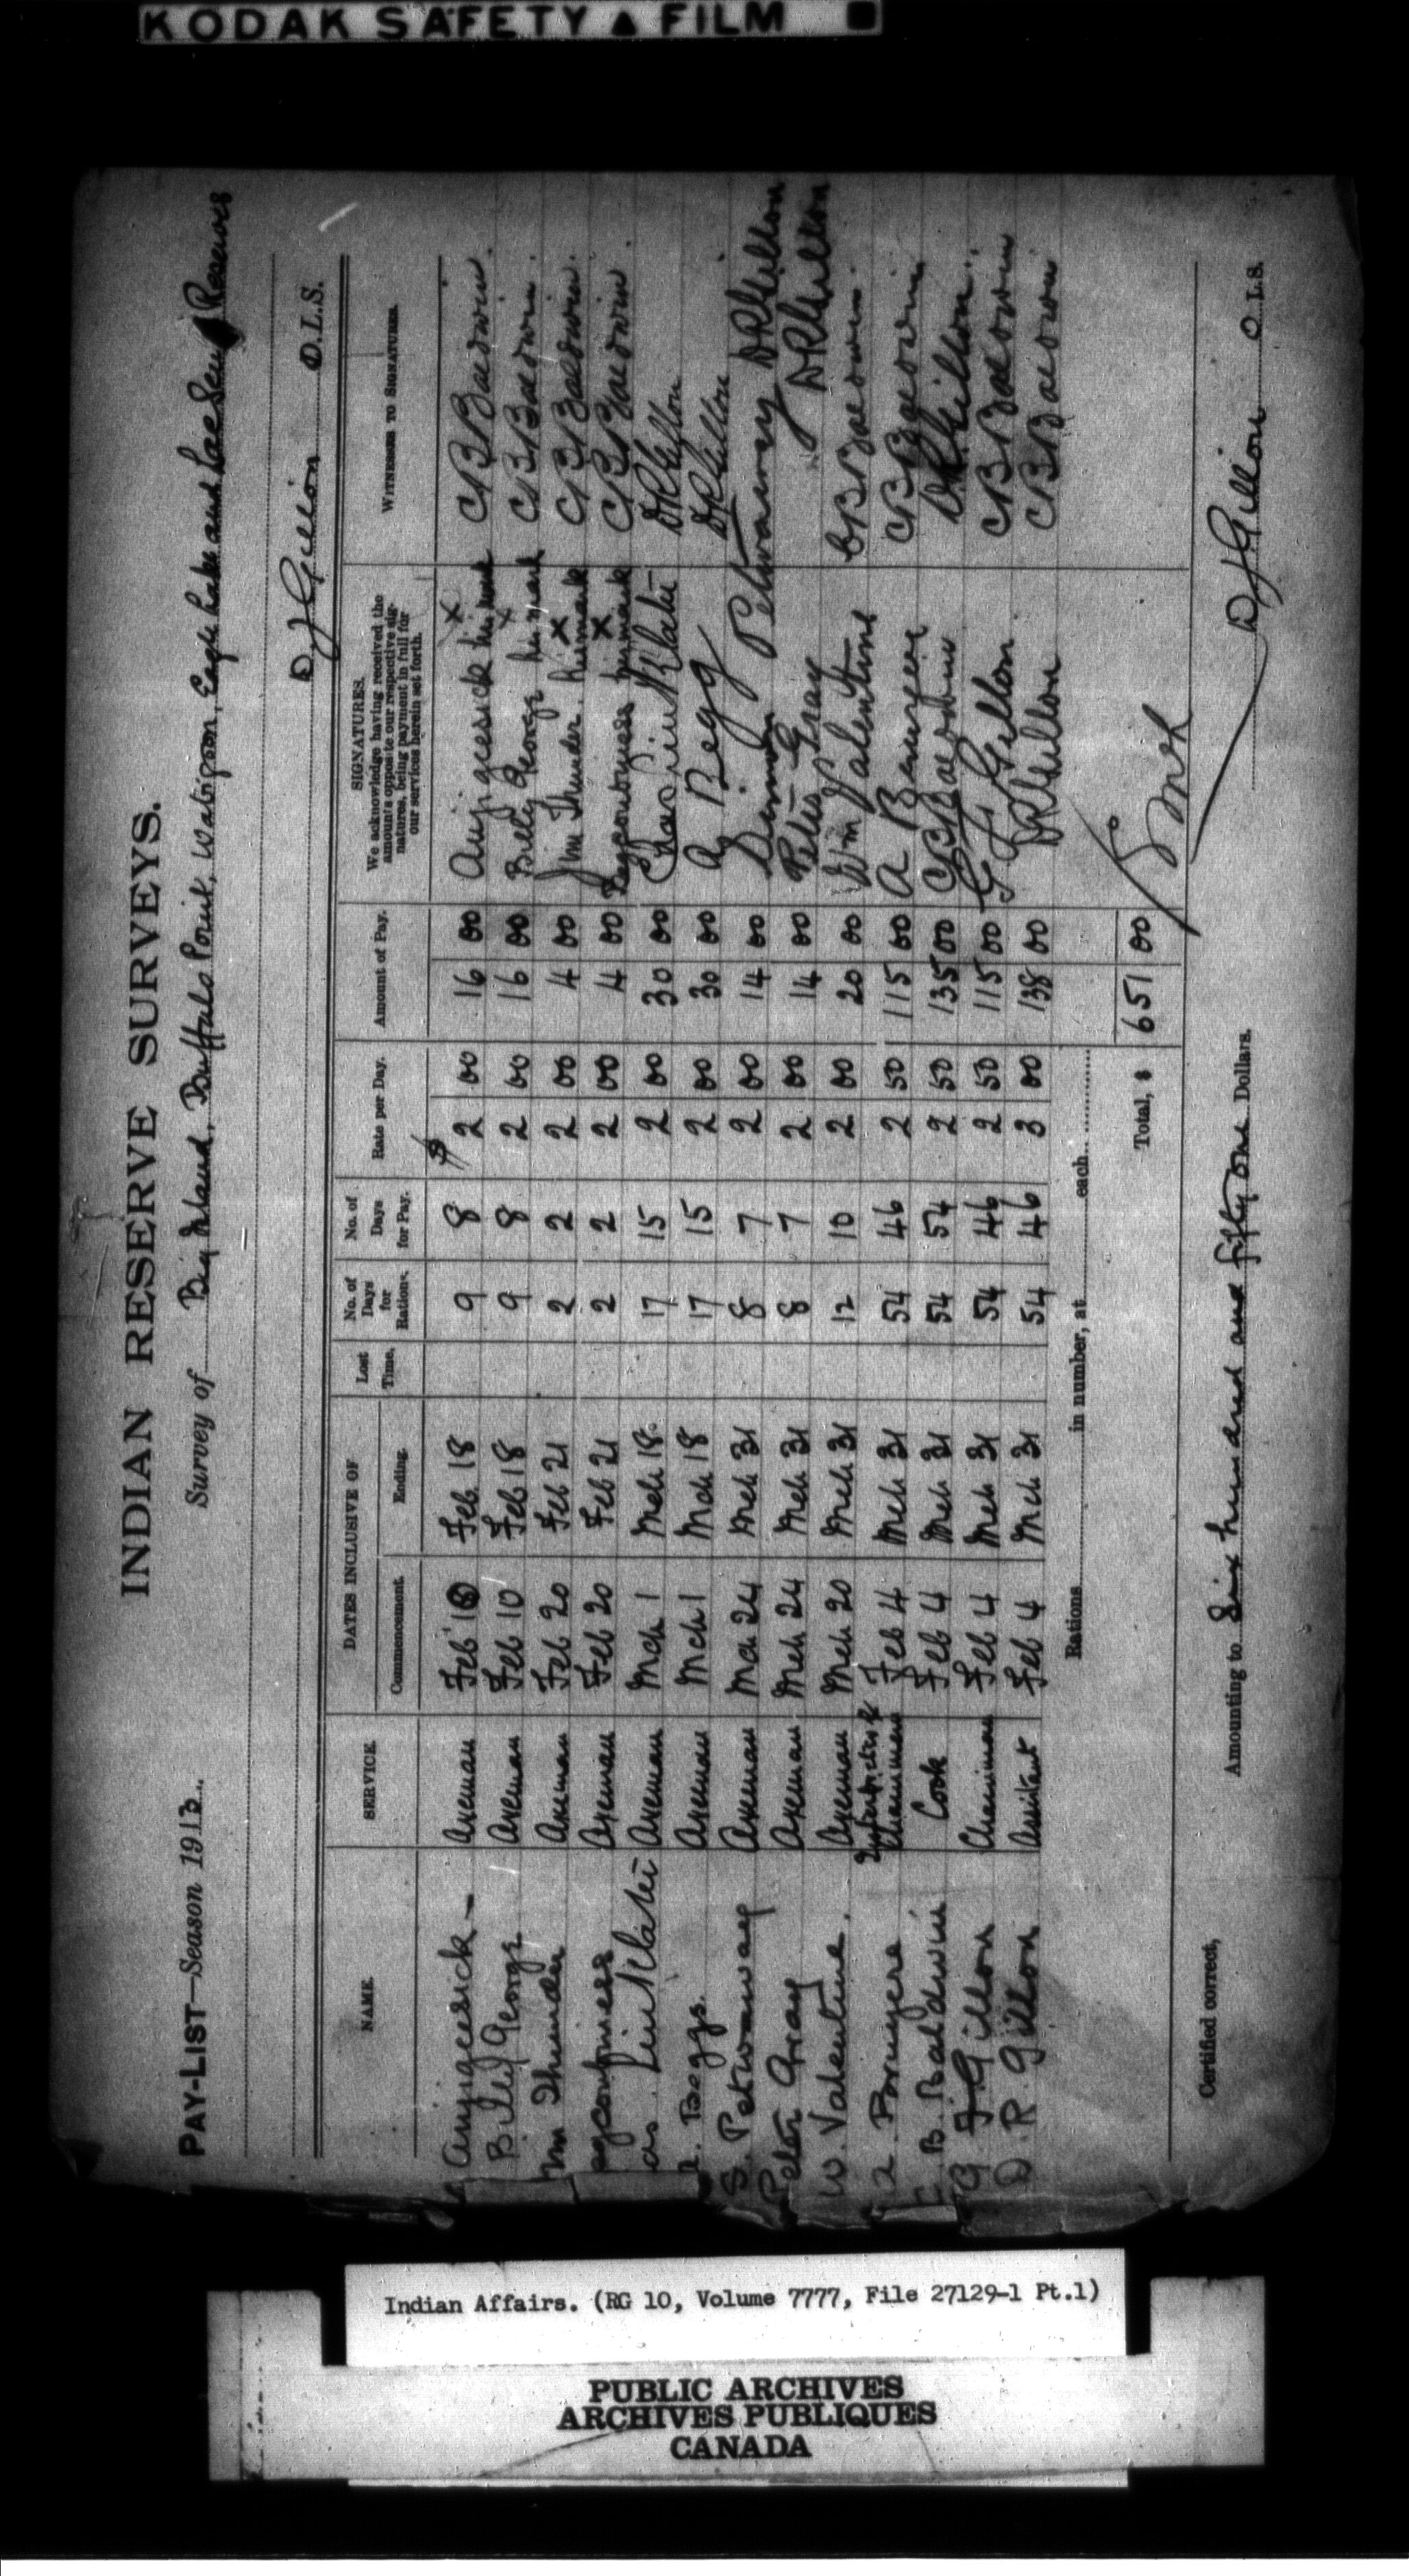 KODAK SAFETY ▲ FILM ■
INDIAN RESERVE SURVEYS.
PAY-LIST—Season 1913.. Survey of Big Island, Buffalo Point, Wabigoon, Eagle Lake and Lac Seul Reserves
D J Gillon D.L.S.
NAME. SERVICE. DATES INCLUSIVE OF Commencement. Ending. Lost Time. No. of Days for Rations. No. of Days for Pay. Rate per Day. Amount of Pay. SIGNATURES. We acknowledge having received the amounts opposite our respective signatures, being payment in full for our services herein set forth. WITNESS TO SIGNATURES.
Anjigeesick — Axeman Feb 10 Feb 18 9 8 $ 2 00 16 00 Anjigeesick his x mark CB Baldwin.
Billy George Axeman Feb 10 Feb 18 9 8 2 00 16 00 Billy George his x mark CB Baldwin.
Jim Thunder Axeman Feb 20 Feb 21 2 2 2 00 4 00 Jim Thunder his x mark CB Baldwin.
Axeman Feb 20 Feb 21 2 2 2 00 4 00 his x mark CB Baldwin.
Axeman Mch 1 Mch 18 17 15 2 00 30 00 Chas DR Gillon
Beggs. Axeman Mch 1 Mch 18 17 15 2 00 30 00 A Begg DR Gillon
S. Petwaway Axeman Mch 24 Mch 31 8 7 2 00 14 00 Simon Petwaway DR Gillon
Peter Gray Axeman Mch 24 Mch 31 8 7 2 00 14 00 Peter Gray DR Gillon
W. Valentine. Axeman Mch 20 Mch 31 12 10 2 00 20 00 Wm Valentine CB Baldwin.
A. Chainman Feb 4 Mch 31 54 46 2 50 115 00 A CB Baldwin
B. Baldwin Cook Feb 4 Mch 31 54 54 2 50 135 00 CB Baldwin DR Gillon.
G J Gillon Chainman Feb 4 Mch 31 54 46 2 50 115 00 G J Gillon CB Baldwin
D. R. Gillon Assistant Feb 4 Mch 31 54 46 3 00 138 00 DR Gillon CB Baldwin
Rations in number, at each
Total, $ 651 00
Certified correct, Amounting to Six hundred and fifty one Dollars.
D J Gillon D.L.S.
Indian Affairs. (RG 10, Volume 7777, File 27129-1 Pt.1)
PUBLIC ARCHIVES
ARCHIVES PUBLIQUES
CANADA